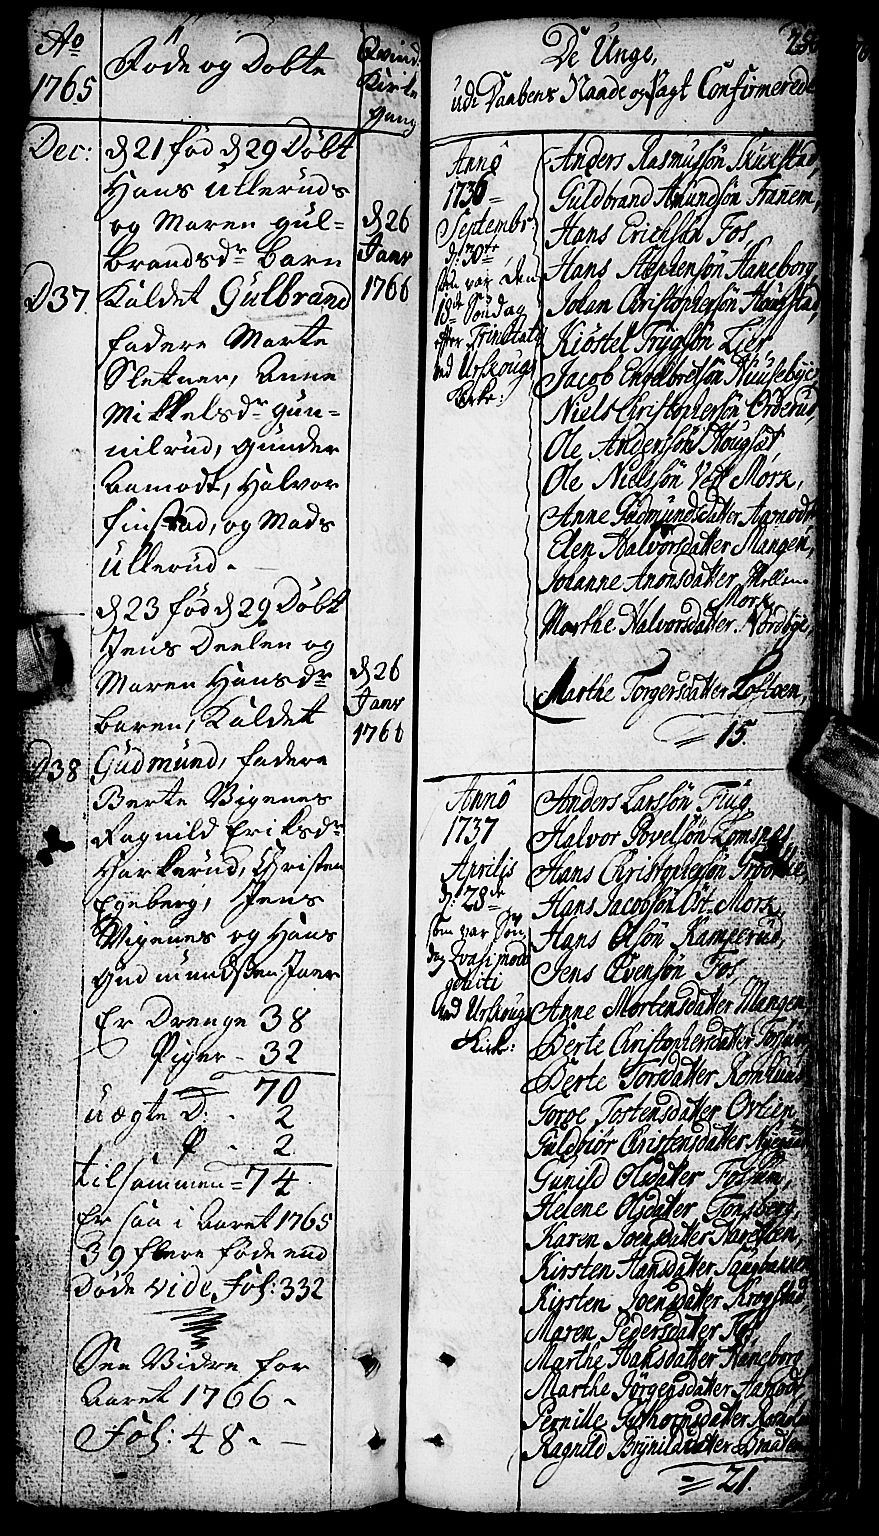 Aō
1765
Føde og Døbte
Qvind
Kirke
gang
Dec:
d 21 fød d 29 Døbt
Hans Ullerúds
og Maren gúl-
brandsdr barn
Kaldet Gúlbrand
D 37
d 26
Janr
1766
fadere Marte
Sletner, Anne
Mikkelsdr gún-
nilrúd, gúnder
Aamodt, Halvor
finstad, og Mads
Ullerúd.
d 23 fød d 29 Døbt
Jens Deelen og
Maren Hansdr
baren, Kaldet
Gúdmúnd, fadere
D 38
d 26
Janr
1766
Berte Vigenes
Ragnild Eriksdr
Harkerúd, Christen
Egeberg, Jens
Vigenes og Hans
Gudmundssen Jaer
Er Drenge 38
Piger - 32
70
uægte D: - 2
P - 2
tilsammen = 74
Er saa i Aaret 1765
39 flere føde end
Døde vide Fol: 332
See Vidre for
Aaret 1766 -
Fol: 48 -
De Unge,
udi Daabens Naade og Pagt Confirmerede
Annô
1736
Septembr:
d: 30te
som var den
18de Søndag
efter Trinitatis
ved Urskougs
Kirke:
Anders Rasmussøn
Guldbrand Amundsøn Tranem,
Hans Erichsøn Fos,
Hans Stephensøn Haneborg,
Johan Christophersøn Haúfstad,
Kiøstel Trygsøn Lier
Jacob Engelbretsøn Huúsebye,
Niels Christophersøn Orderud,
Ole Anderssøn Hougsæt
Ole Nielssøn Vest Mork,
Anne Gudmundsdatter Aamodt
Elen Halvorsdatter Mangen,
Johanne Anonsdatter Mellem
Mork
Marthe Halvorsdatter Nordbye,
Marthe Torgersdatter Loftuen,
15.
Annô
1737
Aprilis
d: 28de
som var Søn
dag Qvasimodo
geniti
ved Urskougs
Kirk:
Anders Larssøn Flúg,
Halvor Povelsøn Lomsnæs
Hans Christophersøn
Hans Jacobsøn Øst-Mork,
Hans Olsøn Kamperud,
Jens Evensøn Fos,
Anne Mortensdatter Mangen
Berte Christophersdatter
Berte Torsdatter Romsund
Goroe Tostensdatter Ovlien
Guldbiør Christensdatter
Gunild Olsdatter Fossum,
Helene Olsdatter Tonsberg,
Karen Joensdatter Harestuen,
Kirsten Hansdatter
Kirsten Joensdatter Krogstad,
Maren Pedersdatter Fos,
Marthe Hansdatter Haneborg
Marthe Jørgensdatter Aamodt,
Pernille Guthormsdatter
Ragnild Brynildsdatter
21.